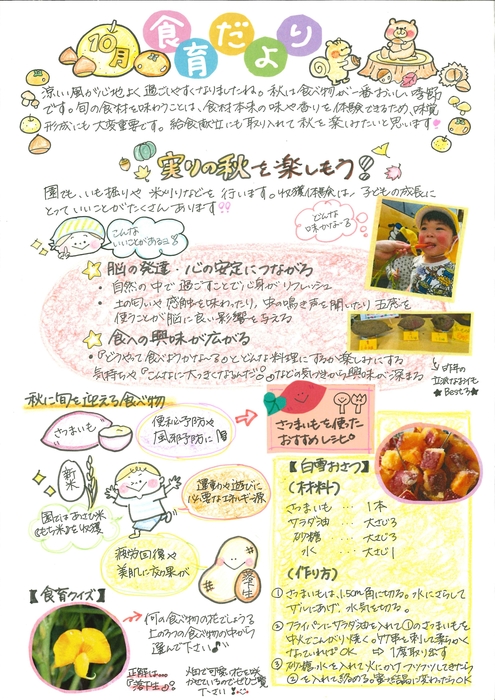 10月
食育だより
涼しい風が心地よく過ごしやすくなりましたね。秋は食べ物が一番おいしい季節
です。旬の食材を味わうことは、食材本来の味や香りを体験できるため、味覚
形成にも大変重要です。給食献立にも取り入れて秋を楽しみたいと思います!!
実りの秋を楽しもう!!
園でも、いも掘りや米刈りなどを行います。収穫体験は、子どもの成長に
とっていいことがたくさんあります!!
どんな
味かな〜?
こんな
いいことがあるよ
★脳の発達・心の安定につながる
・自然の中で過ごすことで心身がリフレッシュ
・土の匂いや感触を味わったり、虫の鳴き声を聞いたり五感を
使うことが脳に良い影響を与える
★食への興味が広がる
・『どうやって食べようかな〜』とどんな料理にするか楽しみにする
気持ちや『こんなに大っきくなるんだ!』などの気づきから興味が深まる
昨年の
立派なおいも
★Best3★
秋に旬を迎える食べ物
さつまいも
便秘予防や
風邪予防に
さつまいもを使った
おすすめレシピ
新米
園ではあさひ米
『もち米』を収穫
運動や遊びに
必要なエネルギー源
疲労回復や
美肌に効果が
落花生
【白雪おさつ】
(材料)
さつまいも … 1本
サラダ油 … 大さじ3
砂糖 … 大さじ3
水 … 大さじ1
(作り方)
①さつまいもは、1.5cm角に切る。水にさらして
ザルにあげ、水気を切る。
②フライパンにサラダ油を入れ①のさつまいもを
中火でこんがり焼く。竹串を刺して柔らかく
なっていればOK ⇒1度取り出す
③砂糖、水を入れて火にかけフツフツしてきたら
②を入れて絡める。蜜が結晶に変わったらOK
【食育クイズ】
何の食べ物の花でしょう
上の3つの食べ物の中から
選んで下さい♪
正解は…
"落花生"
畑で可愛い花を咲
かせているのでぜひご覧
下さい!